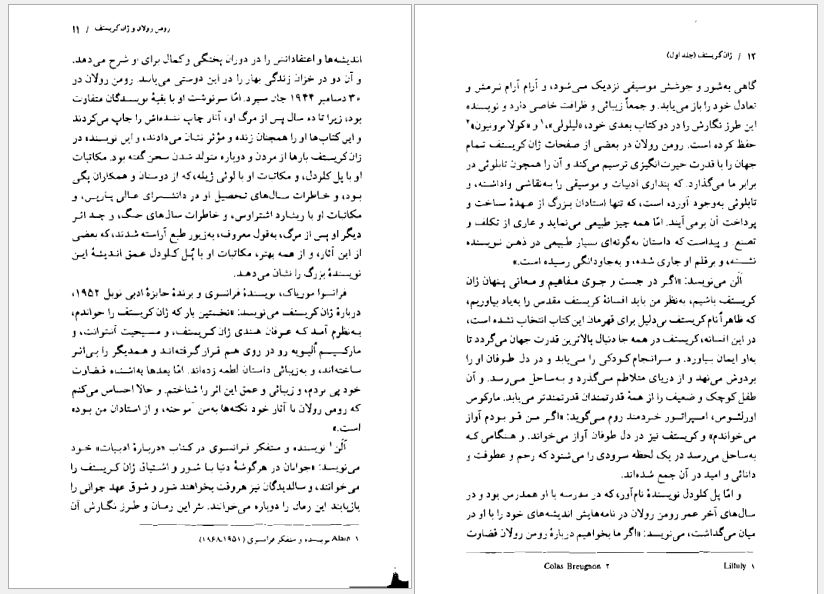 رومن رولان و ژان کریستف / ۱۱
اندیشه‌ها و اعتقاداتش را در دوران پختگی و کمال برای او شرح می‌دهد.
و آن دو در خزان زندگی بهار را در این دوستی می‌یابند. رومن رولان در
۳۰ دسامبر ۱۹۴۴ جان سپرد. امّا سرنوشت او با بقیهٔ نویسندگان متفاوت
بود، زیرا تا ده سال پس از مرگ او، آثار چاپ نشده‌اش را چاپ می‌کردند
و این کتاب‌ها او را همچنان زنده و مؤثر نشان می‌دادند، و این نویسنده در
ژان کریستف بارها از مردن و دوباره متولد شدن سخن گفته بود. مکاتبات
او با پل کلودل، و مکاتبات او با لوئی ژیله، که از دوستان و همکاران پگی
بود، و خاطرات سال‌های تحصیل او در دانشسرای عالی پاریس، و
مکاتبات او با ریشارد اشتراوس، و خاطرات سال‌های جنگ، و چند اثر
دیگر او پس از مرگ، به‌قول معروف، به‌زیور طبع آراسته شدند، که بعضی
از این آثار، و از همه بهتر، مکاتبات او با پُل کلودل عمق اندیشهٔ این
نویسندهٔ بزرگ را نشان می‌دهد.
فرانسوا موریاک، نویسندهٔ فرانسوی و برندهٔ جایزهٔ ادبی نوبل ۱۹۵۲،
دربارهٔ ژان کریستف می‌نویسد: «نخستین بار که ژان کریستف را خواندم،
به‌نظرم آمد که عرفان هندی ژان کریستف، و مسیحیت آنتوانت، و
مارکسیسم اُلیویه رو در روی هم قرار گرفته‌اند و همدیگر را بی‌اثر
ساخته‌اند، و به‌زیبائی داستان لطمه زده‌اند. امّا بعدها به‌اشتباه قضاوت
خود پی بردم، و زیبائی و عمق این اثر را شناختم. و حالا احساس می‌کنم
که رومن رولان با آثار خود نکته‌ها به‌من آموخته، و از استادان من بوده
است.»
آلن۱ نویسنده و متفکر فرانسوی در کتاب «دربارهٔ ادبیات» خود
می‌نویسد: «جوانان در هرگوشهٔ دنیا با شور و اشتیاق ژان کریستف را
می‌خوانند، و سالدیدگان نیز هروقت بخواهند شور و شوق عهد جوانی را
بازیابند این رمان را دوباره می‌خوانند. نثر این رمان و طرز نگارش آن
۱ Alain نویسنده و متفکر فرانسوی (۱۹۵۱ـ۱۸۶۸)
۱۲ / ژان کریستف (جلد اول)
گاهی به‌شور و جوشش موسیقی نزدیک می‌شود، و آرام آرام نرمش و
تعادل خود را باز می‌یابد. و جمعاً زیبائی و ظرافت خاصی دارد و نویسنده
این طرز نگارش را در دو کتاب بعدی خود، «لیلولی»،۱ و «کولا برونیون»۲
حفظ کرده است. رومن رولان در بعضی از صفحات ژان کریستف تمام
جهان را با قدرت حیرت‌انگیزی ترسیم می‌کند و آن را همچون تابلوئی در
برابر ما می‌گذارد. که پنداری ادبیات و موسیقی را به‌نقاشی واداشته، و
تابلوئی به‌وجود آورده است، که تنها استادان بزرگ از عهدهٔ ساخت و
پرداخت آن برمی‌آیند. امّا همه چیز طبیعی می‌نماید و عاری از تکلف و
تصنع و پیداست که داستان به‌گونه‌ای بسیار طبیعی در ذهن نویسنده
نشسته، و برقلم او جاری شده، و به‌جاودانگی رسیده است.»
آلن می‌نویسد: «اگر در جست و جوی مفاهیم و معانی پنهان ژان
کریستف باشیم، به‌نظر من باید افسانهٔ کریستف مقدس را به‌یاد بیاوریم،
که ظاهراً نام کریستف بی‌دلیل برای قهرمان این کتاب انتخاب نشده است،
در این افسانه، کریستف در همه جا دنبال بالاترین قدرت جهان می‌گردد تا
به‌او ایمان بیاورد. و سرانجام کودکی را می‌یابد و در دل طوفان او را
بردوش می‌نهد و از دریای متلاطم می‌گذرد و به‌ساحل می‌رسد. و آن
طفل کوچک و ضعیف را از همهٔ قدرتمندان قدرتمندتر می‌یابد. مارکوس
اورلئوس، امپراتور خردمند روم می‌گوید: «اگر من قو بودم آواز
می‌خواندم» و کریستف نیز در دل طوفان آواز می‌خواند. و هنگامی که
به‌ساحل می‌رسد در یک لحظه سرودی را می‌شنود که رحم و عطوفت و
دانائی و امید در آن جمع شده‌اند.
و امّا پل کلودل نویسندهٔ نام‌آور، که در مدرسه با او همدرس بود و در
سال‌های آخر عمر رومن رولان در نامه‌هایش اندیشه‌های خود را با او در
میان می‌گذاشت، می‌نویسد: «اگر ما بخواهیم دربارهٔ رومن رولان قضاوت
۱ Liliuly ۲ Colas Breugnon